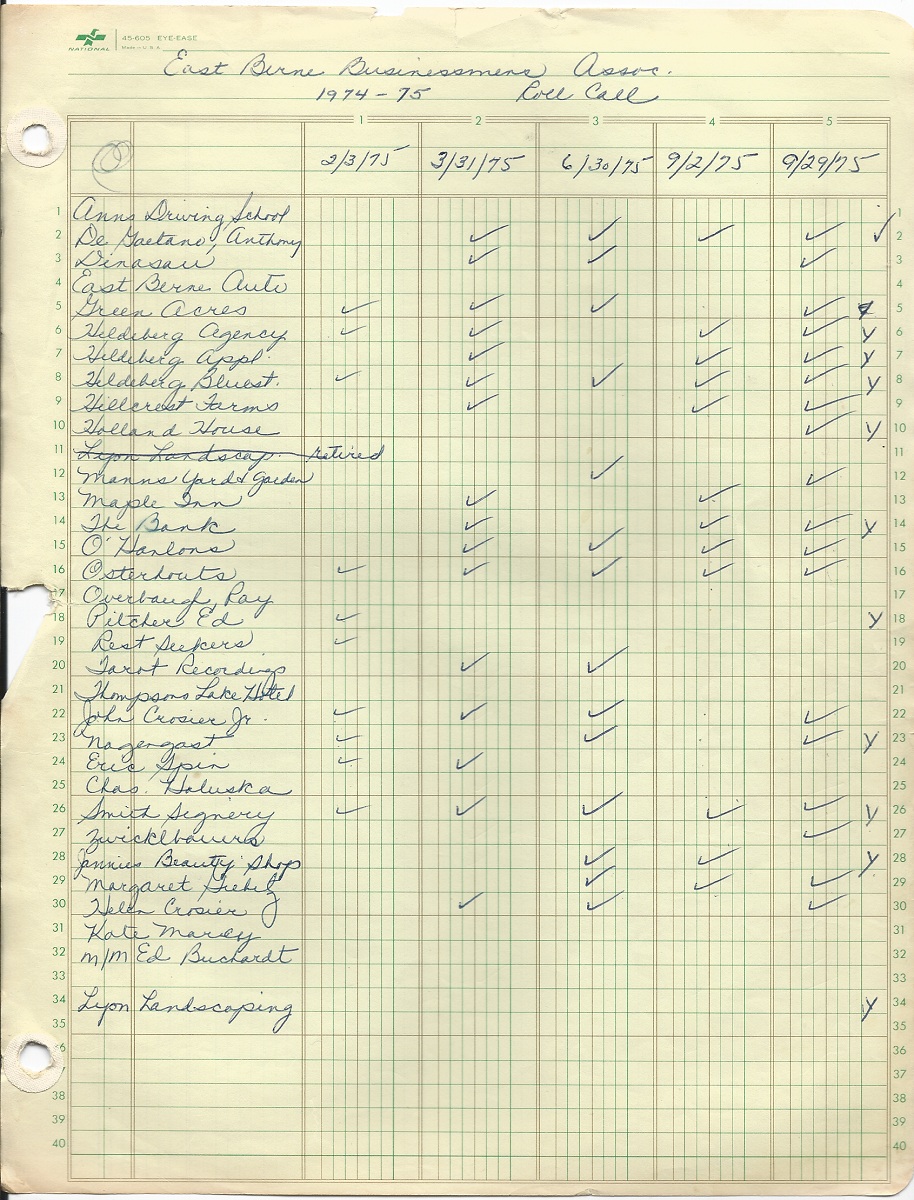 NATIONAL 45-605 EYE-EASE
Made in U.S.A.
East Berne Businessmens Assoc.
1974-75 Roll Call
1 2 3 4 5
2/3/75 3/31/75 6/30/75 9/2/75 9/29/75
1 Anns Driving School 1
2 De Gaetano, Anthony ✓ ✓ ✓ ✓ 2 ✓
3 Dinasau ✓ ✓ ✓ 3
4 East Berne Auto 4
5 Green Acres ✓ ✓ ✓ ✓ 5
6 Hildeberg Agency ✓ ✓ ✓ ✓ y 6
7 Hildeberg Appl. ✓ ✓ ✓ y 7
8 Hildeberg Bluest. ✓ ✓ ✓ ✓ ✓ y 8
9 Hillcrest Farms ✓ ✓ ✓ 9
10 Holland House ✓ y 10
11 Lyon Landscap. retired 11
12 Manns Yard & Garden ✓ ✓ 12
13 Maple Inn ✓ ✓ 13
14 The Bank ✓ ✓ ✓ y 14
15 O'Hanlons ✓ ✓ ✓ ✓ 15
16 Osterhouts ✓ ✓ ✓ ✓ ✓ 16
17 Overbaugh, Ray 17
18 Pitcher Ed ✓ y 18
19 Rest Seekers ✓ 19
20 Tarot Recordings ✓ ✓ 20
21 Thompsons Lake Hotel 21
22 John Crosier Jr. ✓ ✓ ✓ ✓ 22
23 Nagengast ✓ ✓ ✓ y 23
24 Eric Spin ✓ ✓ 24
25 Chas. Haluska 25
26 Smith Signery ✓ ✓ ✓ ✓ ✓ y 26
27 Zwicklbauers ✓ 27
28 Jannies Beauty Shop ✓ ✓ y 28
29 Margaret ✓ ✓ ✓ 29
30 Helen Crosier ✓ ✓ ✓ 30
31 Kate 31
32 M/M Ed Buchardt 32
33 33
34 Lyon Landscoping y 34
35 35
6 36
37
38 38
39 39
40 40